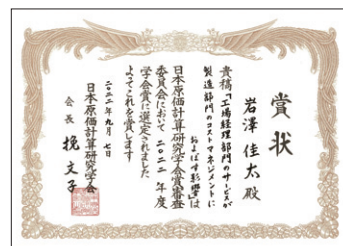 賞状
岩澤佳太殿
貴稿「工場経理部門のサービスが
製造部門のコストマネジメントに
およぼす影響」は
日本原価計算研究学会賞審査
委員会において二〇二二年度
学会賞に選定されました
よってこれを賞します
二〇二二年九月七日
日本原価計算研究学会
会長 挽文子